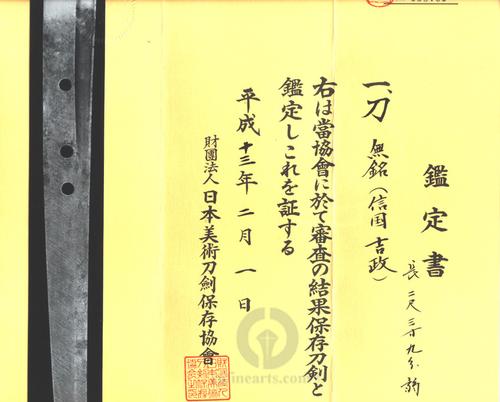 鑑定書
一、刀 無銘(信国吉政)
長 二尺三寸九分
右は當協會に於て審査の結果保存刀剣と
鑑定しこれを証する
平成十三年二月一日
財團法人 日本美術刀劍保存協會
inearts.com